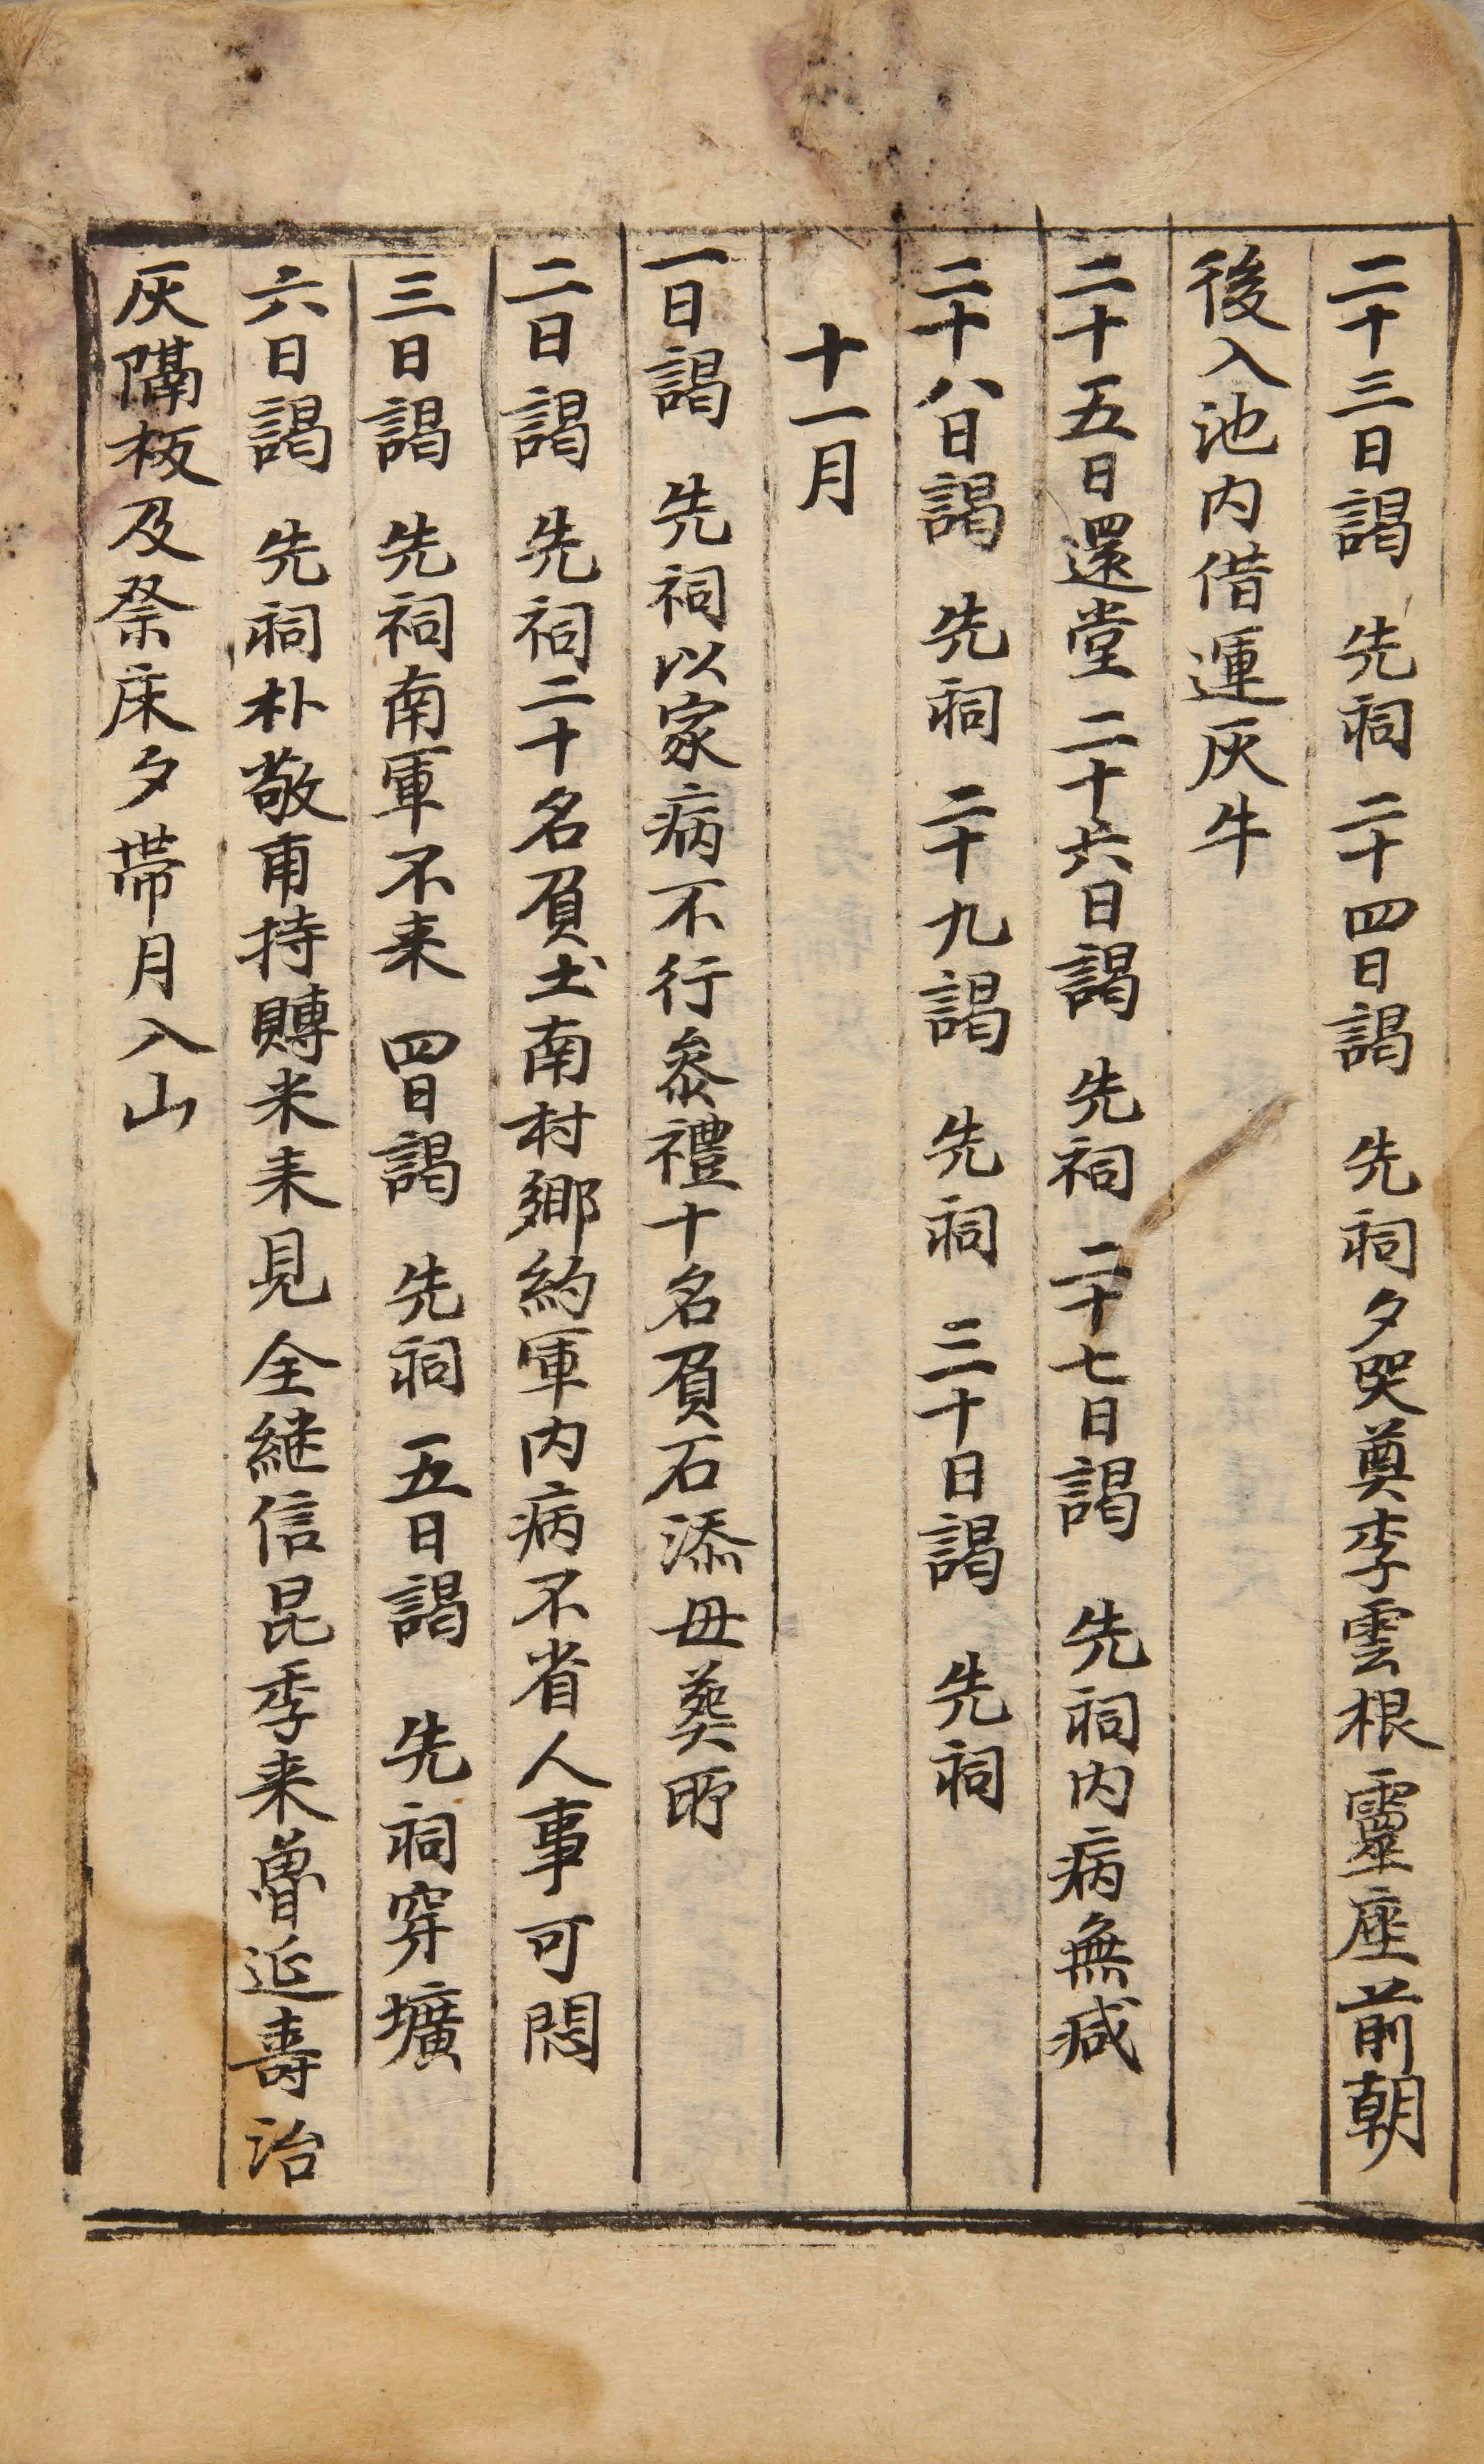 二十三日謁 先祠 二十四日謁 先祠夕哭奠李雲根靈座前朝
後入池内借運灰牛
二十五日還堂 二十六日謁 先祠 二十七日謁 先祠内病無减
二十八日謁 先祠 二十九謁 先祠 三十日謁 先祠
十一月
一日謁 先祠以家病不行叅禮十名負石添毋葬所
二日謁 先祠二十名負土南村鄉約軍内病不省人事可悶
三日謁 先祠南軍不来 四日謁 先祠 五日謁 先祠穿壙
六日謁 先祠朴敬甫持賻米来見全継信昆季来魯延壽治
灰隔板及祭床夕帶月入山